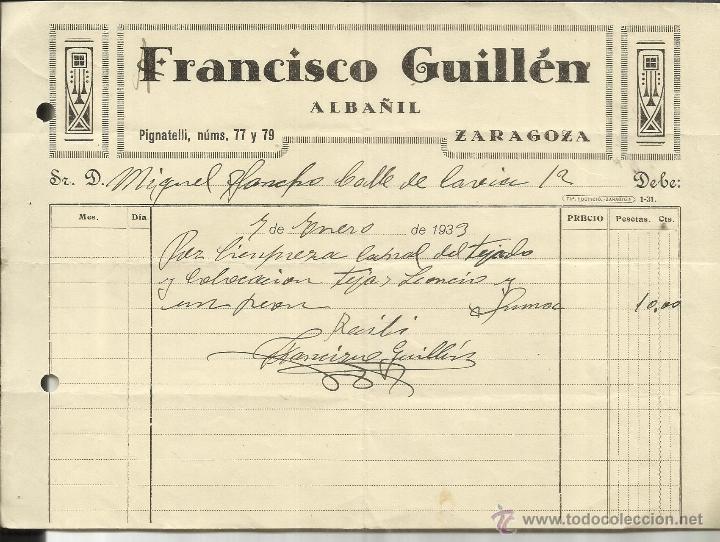 Francisco Guillén
ALBAÑIL
Pignatelli, núms. 77 y 79
ZARAGOZA
Sr. D. Miguel Sancho Calle de 1ª Debe:
ZARAGOZA 1-31.
Mes. Día PRECIO Pesetas. Cts.
7 de Enero de 1933
Por limpieza del tejado
y colocacion tejas Leoncio y
un peon Suma 10,00
Recibi
Francisco Guillén
www.todocoleccion.net